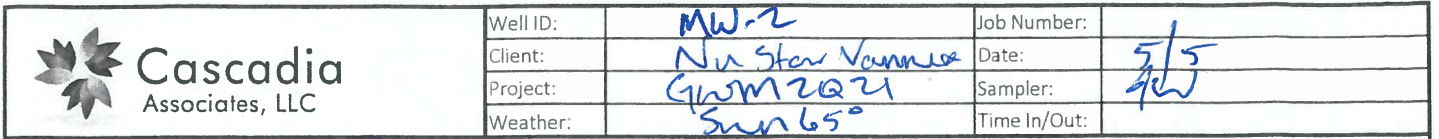 Cascadia
Associates, LLC
Well ID: MW-2 Job Number:
Client: Nu Star Date: 5/5
Project: GWM2Q21 Sampler:
Weather: Sun 65° Time In/Out: